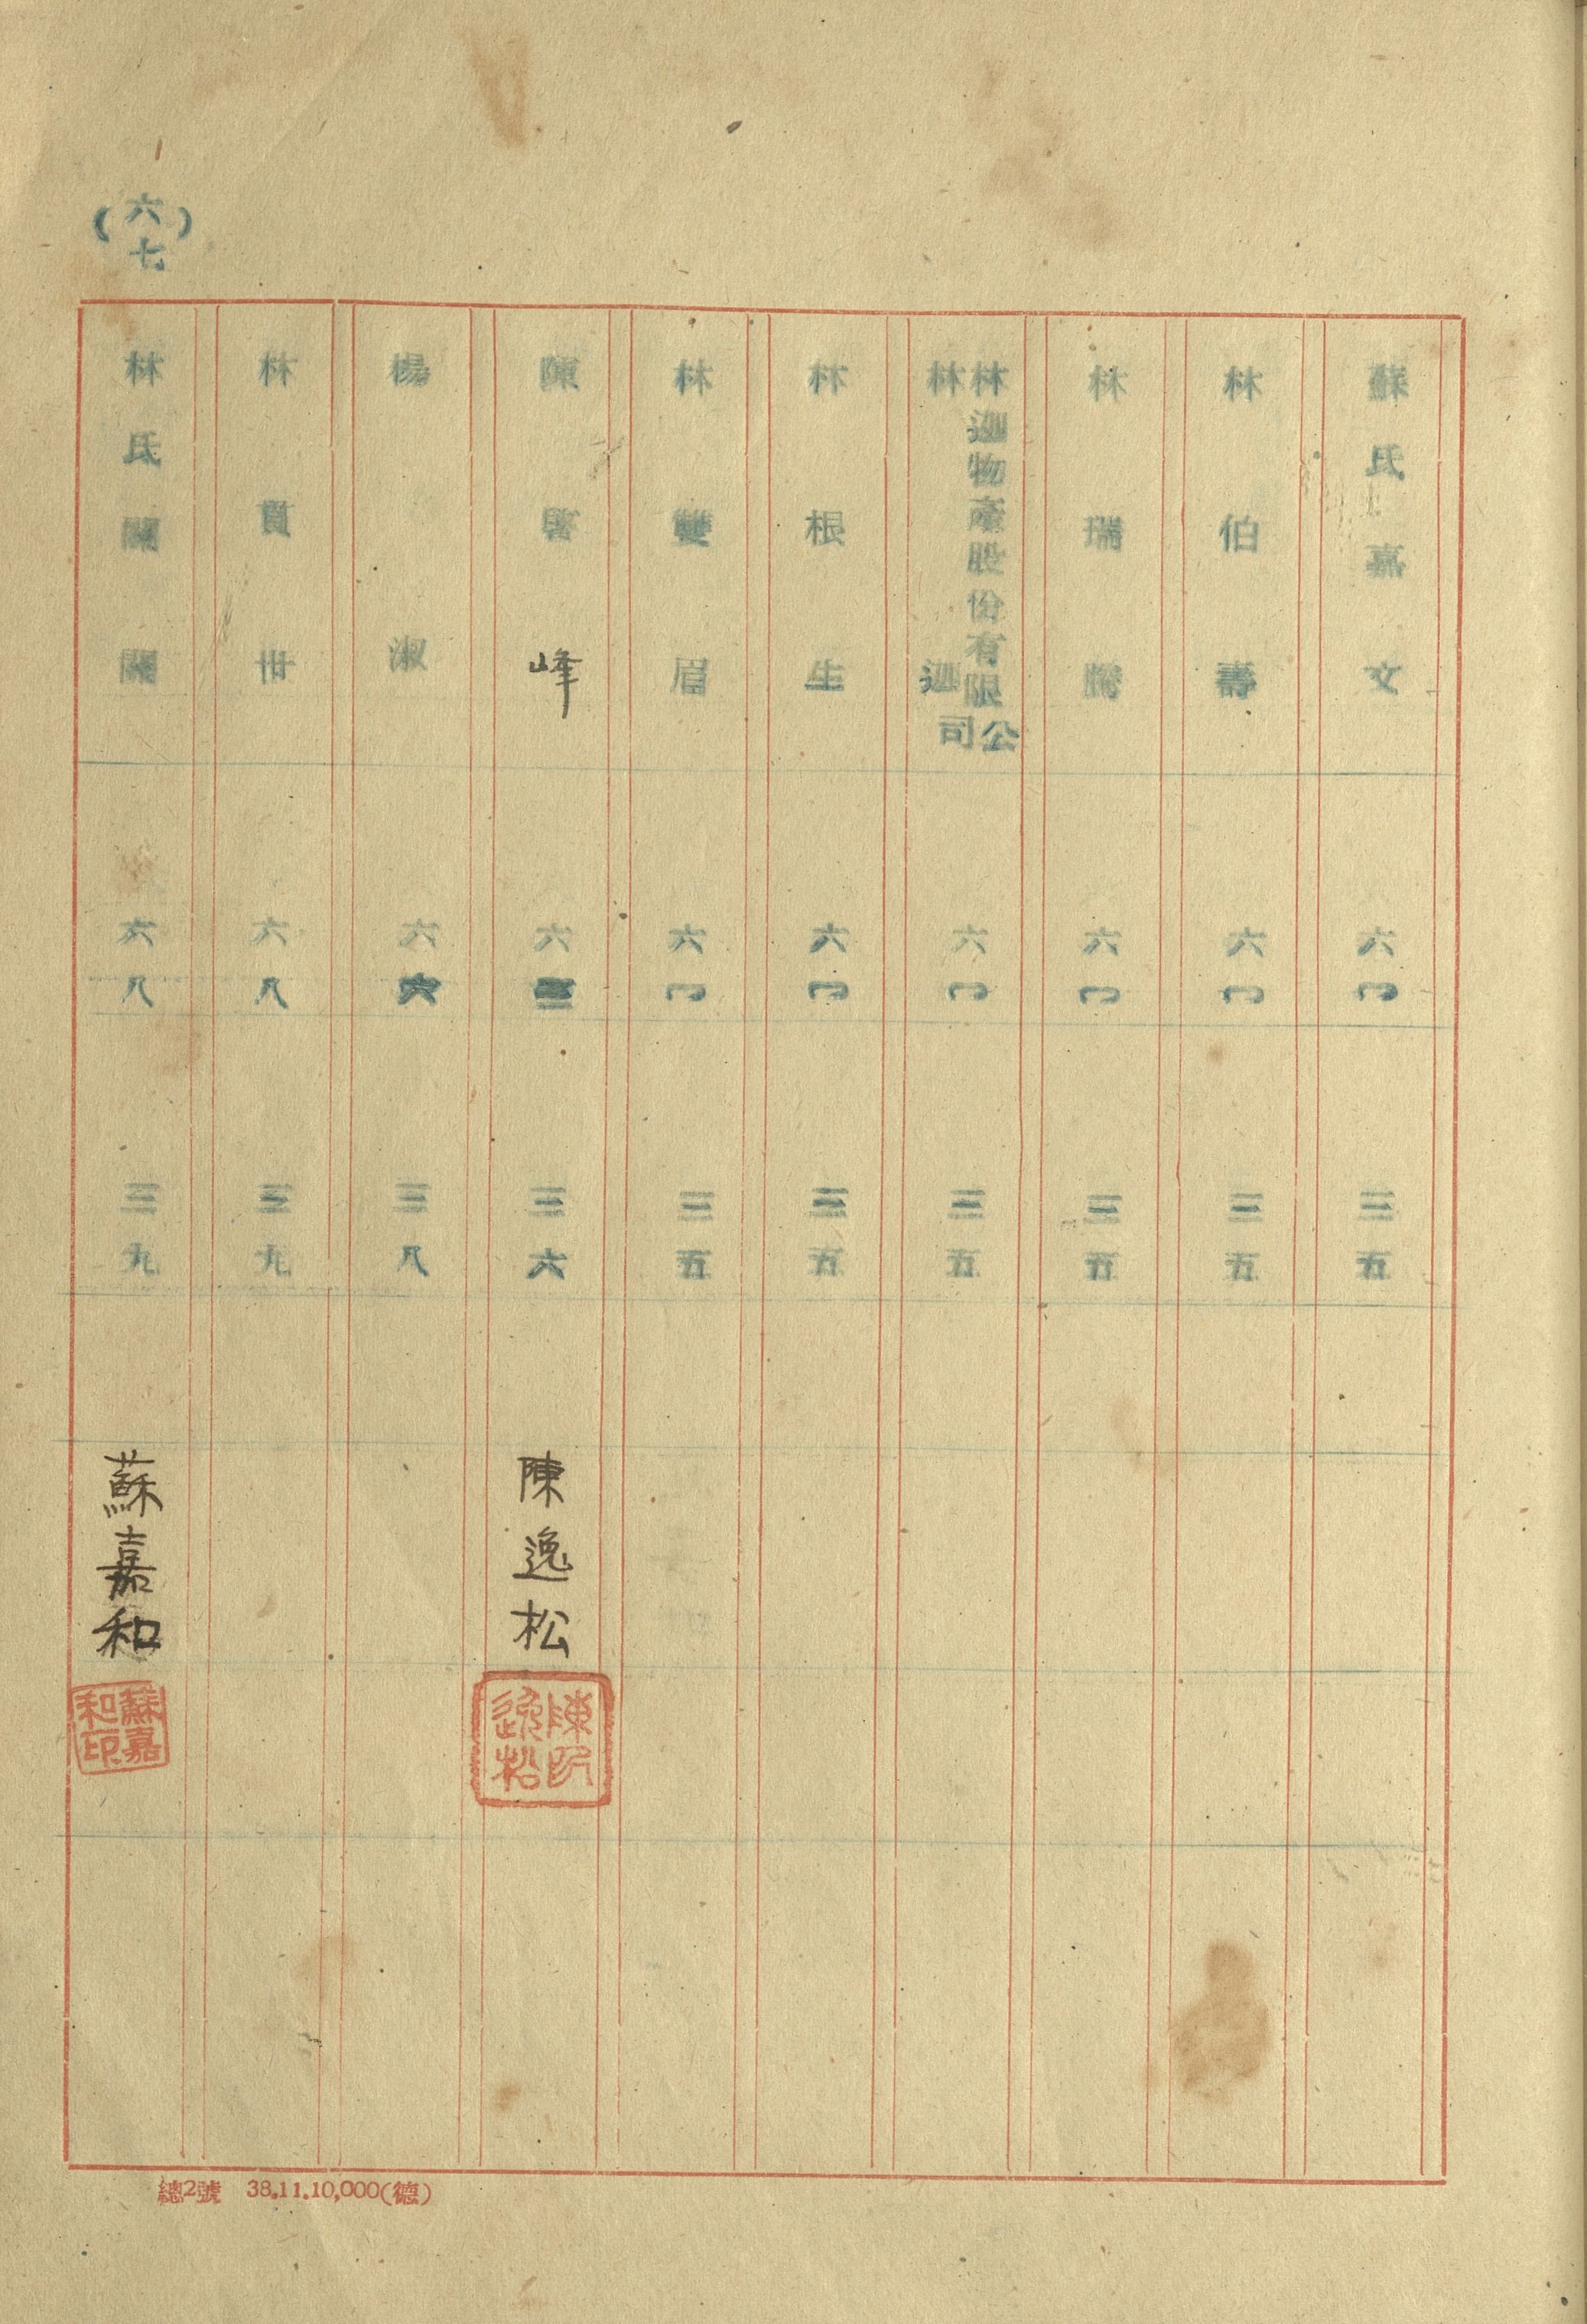 (六七)
蘇氏嘉文 六〇 三五
林伯壽 六〇 三五
林瑞騰 六〇 三五
林迦物產股份有限公司
林迦 六〇 三五
林根生 六〇 三五
林雙眉 六〇 三五
陳 峰 六 三六
陳逸松
陳逸松印
楊淑 六六 三八
林貫世 六八 三九
林氏關關 六八 三九
蘇嘉和
蘇嘉和印
總2號 38.11.10,000(德)